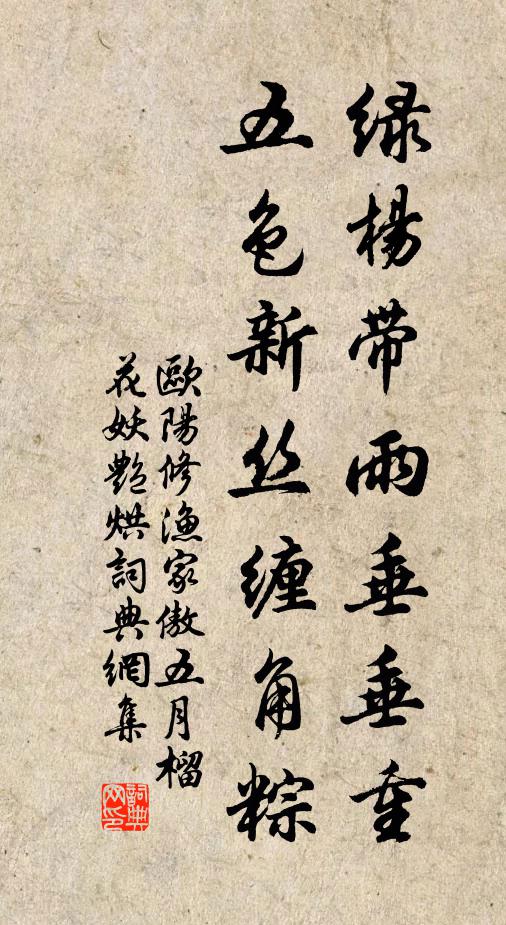 绿杨带雨垂垂重
五色新丝缠角粽
歐陽修漁家傲五月榴
花妖艷烘詞典網集
詞典网印